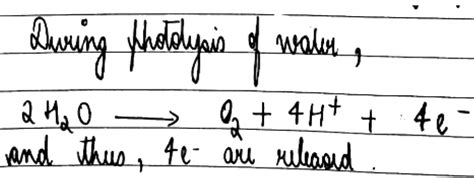 During photolysis of water,
2H₂O ⟶ O₂ + 4H⁺ + 4e⁻
and thus, 4e⁻ are released.